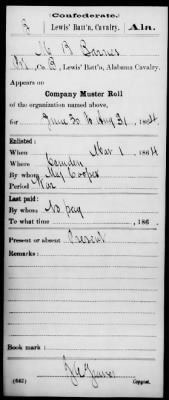 (Confederate.)
B Lewis' Batt'n, Cavalry. Ala.
B Barnes
Pvt, Co. B, Lewis' Batt'n, Alabama Cavalry.
Appears on
Company Muster Roll
of the organization named above,
for June 30 to Aug 31, 1864
Enlisted:
When Mar 1, 1864
Where Camden
By whom Maj Cooper
Period War
Last paid:
By whom No pay
To what time , 186
Present or absent Present
Remarks:
Book mark:
(642) Copyist.